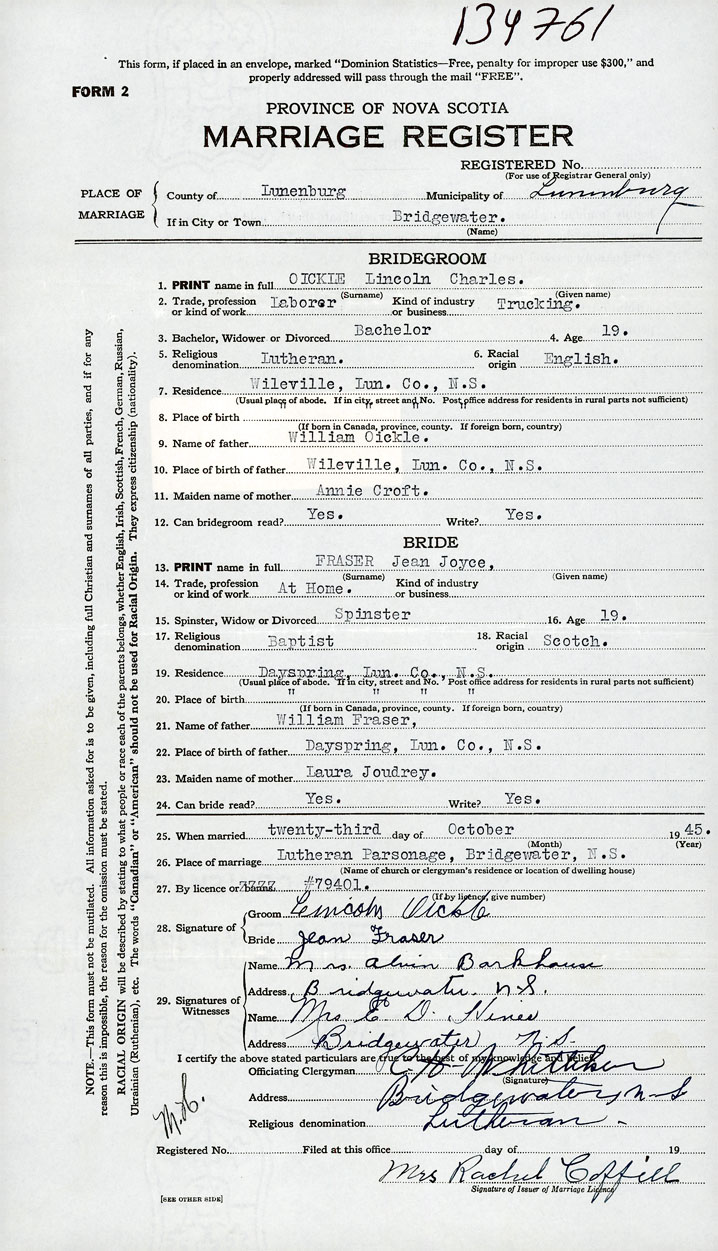 134761
This form, if placed in an envelope, marked "Dominion Statistics—Free, penalty for improper use $300," and
properly addressed will pass through the mail "FREE".
FORM 2
PROVINCE OF NOVA SCOTIA
MARRIAGE REGISTER
REGISTERED No.
(For use of Registrar General only)
PLACE OF MARRIAGE
County of Lunenburg Municipality of Lunenburg
If in City or Town Bridgewater.
(Name)
BRIDEGROOM
1. PRINT name in full OICKLE Lincoln Charles.
(Surname) (Given name)
2. Trade, profession or kind of work Laborer Kind of industry or business Trucking.
3. Bachelor, Widower or Divorced Bachelor 4. Age 19.
5. Religious denomination Lutheran. 6. Racial origin English.
7. Residence Wileville, Lun. Co., N.S.
(Usual place of abode. If in city, street and No. Post office address for residents in rural parts not sufficient)
8. Place of birth " " " "
(If born in Canada, province, county. If foreign born, country)
9. Name of father William Oickle.
10. Place of birth of father Wileville, Lun. Co., N.S.
11. Maiden name of mother Annie Croft.
12. Can bridegroom read? Yes. Write? Yes.
BRIDE
13. PRINT name in full FRASER Jean Joyce,
(Surname) (Given name)
14. Trade, profession or kind of work At Home. Kind of industry or business
15. Spinster, Widow or Divorced Spinster 16. Age 19.
17. Religious denomination Baptist 18. Racial origin Scotch.
19. Residence Dayspring, Lun. Co., N.S.
(Usual place of abode. If in city, street and No. Post office address for residents in rural parts not sufficient)
20. Place of birth " " " "
(If born in Canada, province, county. If foreign born, country)
21. Name of father William Fraser,
22. Place of birth of father Dayspring, Lun. Co., N.S.
23. Maiden name of mother Laura Joudrey.
24. Can bride read? Yes. Write? Yes.
25. When married twenty-third day of October 1945.
(Month) (Year)
26. Place of marriage Lutheran Parsonage, Bridgewater, N.S.
(Name of church or clergyman's residence or location of dwelling house)
27. By licence or banns #79401.
(If by licence, give number)
28. Signature of
Groom Lincoln Oickle
Bride Jean Fraser
29. Signatures of Witnesses
Name Mrs Alvin Barkhouse
Address Bridgewater N.S.
Name Mrs E D. Nines
Address Bridgewater N.S.
I certify the above stated particulars are true to the best of my knowledge and belief.
Officiating Clergyman
(Signature)
Address Bridgewater N-S
Religious denomination Lutheran -
Registered No. Filed at this office day of 19
Mrs Rachel Coffill
Signature of Issuer of Marriage Licence
[SEE OTHER SIDE]
NOTE.—This form must not be mutilated. All information asked for is to be given, including full Christian and surnames of all parties, and if for any
reason this is impossible, the reason for the omission must be stated.
RACIAL ORIGIN will be described by stating to what people or race each of the parents belongs, whether English, Irish, Scottish, French, German, Russian,
Ukrainian (Ruthenian), etc. The words "Canadian" or "American" should not be used for Racial Origin. They express citizenship (nationality).